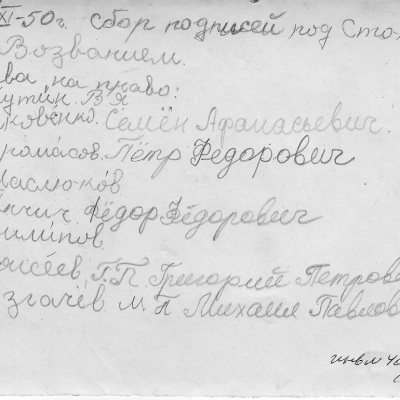 XI-50г. Сбор подписей под Сто
Возванием.
ва на право:
утин. В.Я
ковенко. Семён Афанасьевич.
рамасов. Пётр Федорович
аслюков
нчич Фёдор Фёдорович
илипов
аисеев, Г.П. Григорий Петров
згачёв М П Михаил Павлов
инв№